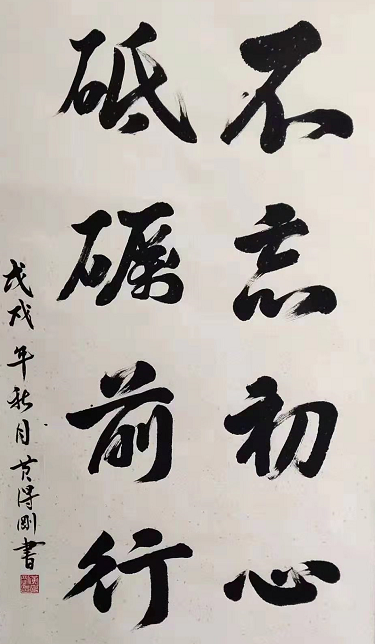 不忘初心
砥砺前行
戊戌年秋月黄得刚書